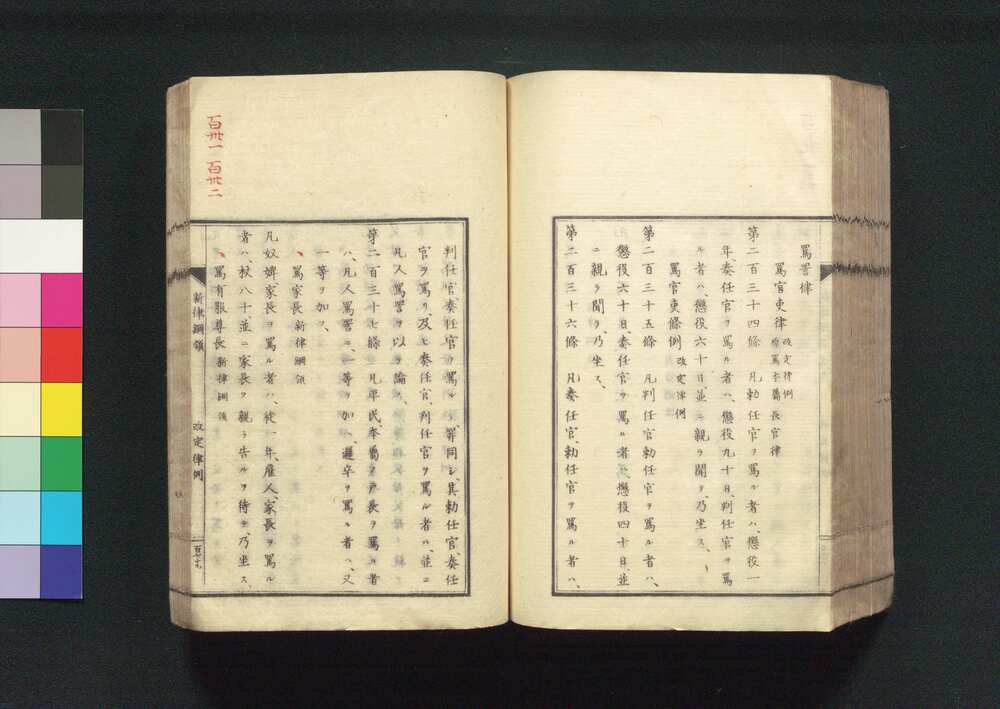 罵詈律
罵官吏律 改定律例
原罵本屬長官律
第二百三十四條　凡勅任官ヲ罵ル者ハ、懲役一
年、奏任官ヲ罵ル者ハ、懲役九十日、判任官ヲ罵
ル者ハ、懲役六十日、並ニ親ラ聞ヲ、乃坐ス、
罵官吏條例 改定律例
第二百三十五條　凡判任官勅任官ヲ罵ル者ハ、
懲役六十日、奏任官ヲ罵ル者ハ、懲役四十日、並
ニ親ラ聞ヲ、乃坐ス、
第二百三十六條　凡奏任官、勅任官ヲ罵ル者ハ、
判任官、奏任官ヲ罵ルト、罪同シ、其勅任官奏任
官ヲ罵リ、及ヒ奏任官、判任官ヲ罵ル者ハ、並ニ
凡人罵詈ヲ以テ論ス、
第二百三十七條　凡平民、本屬ノ戸長ヲ罵ル者
ハ、凡人罵詈ニ、一等ヲ加ヘ、邏卒ヲ罵ル者ハ、又
一等ヲ加フ、
罵家長 新律綱領
凡奴婢家長ヲ罵ル者ハ、徒一年、雇人、家長ヲ罵ル
者ハ、杖八十、並ニ家長ノ親ラ告ルヲ待テ、乃坐ス、
罵有服尊長 新律綱領
新律綱領　改定律例
百卅一　百卅二